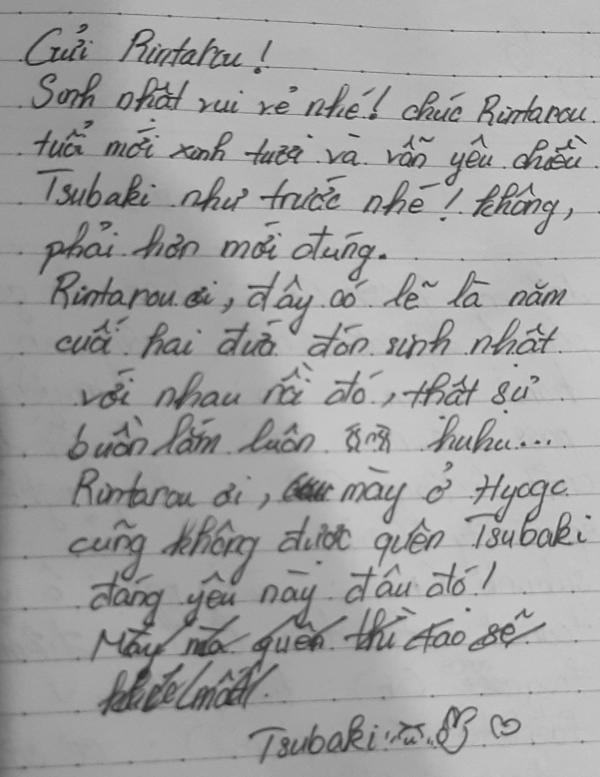 Gửi Rintarou!
Sinh nhật vui vẻ nhé! chúc Rintarou
tuổi mới xinh tươi và vẫn yêu chiều
Tsubaki như trước nhé! không,
phải hơn mới đúng.
Rintarou ơi, đây có lẽ là năm
cuối hai đứa đón sinh nhật
với nhau rồi đó, thật sự
buồn lắm luôn huhu...
Rintarou ơi, mày ở Hyogo
cũng không được quên Tsubaki
đáng yêu này đâu đó!
Mày mà quên thì tao sẽ
Tsubaki